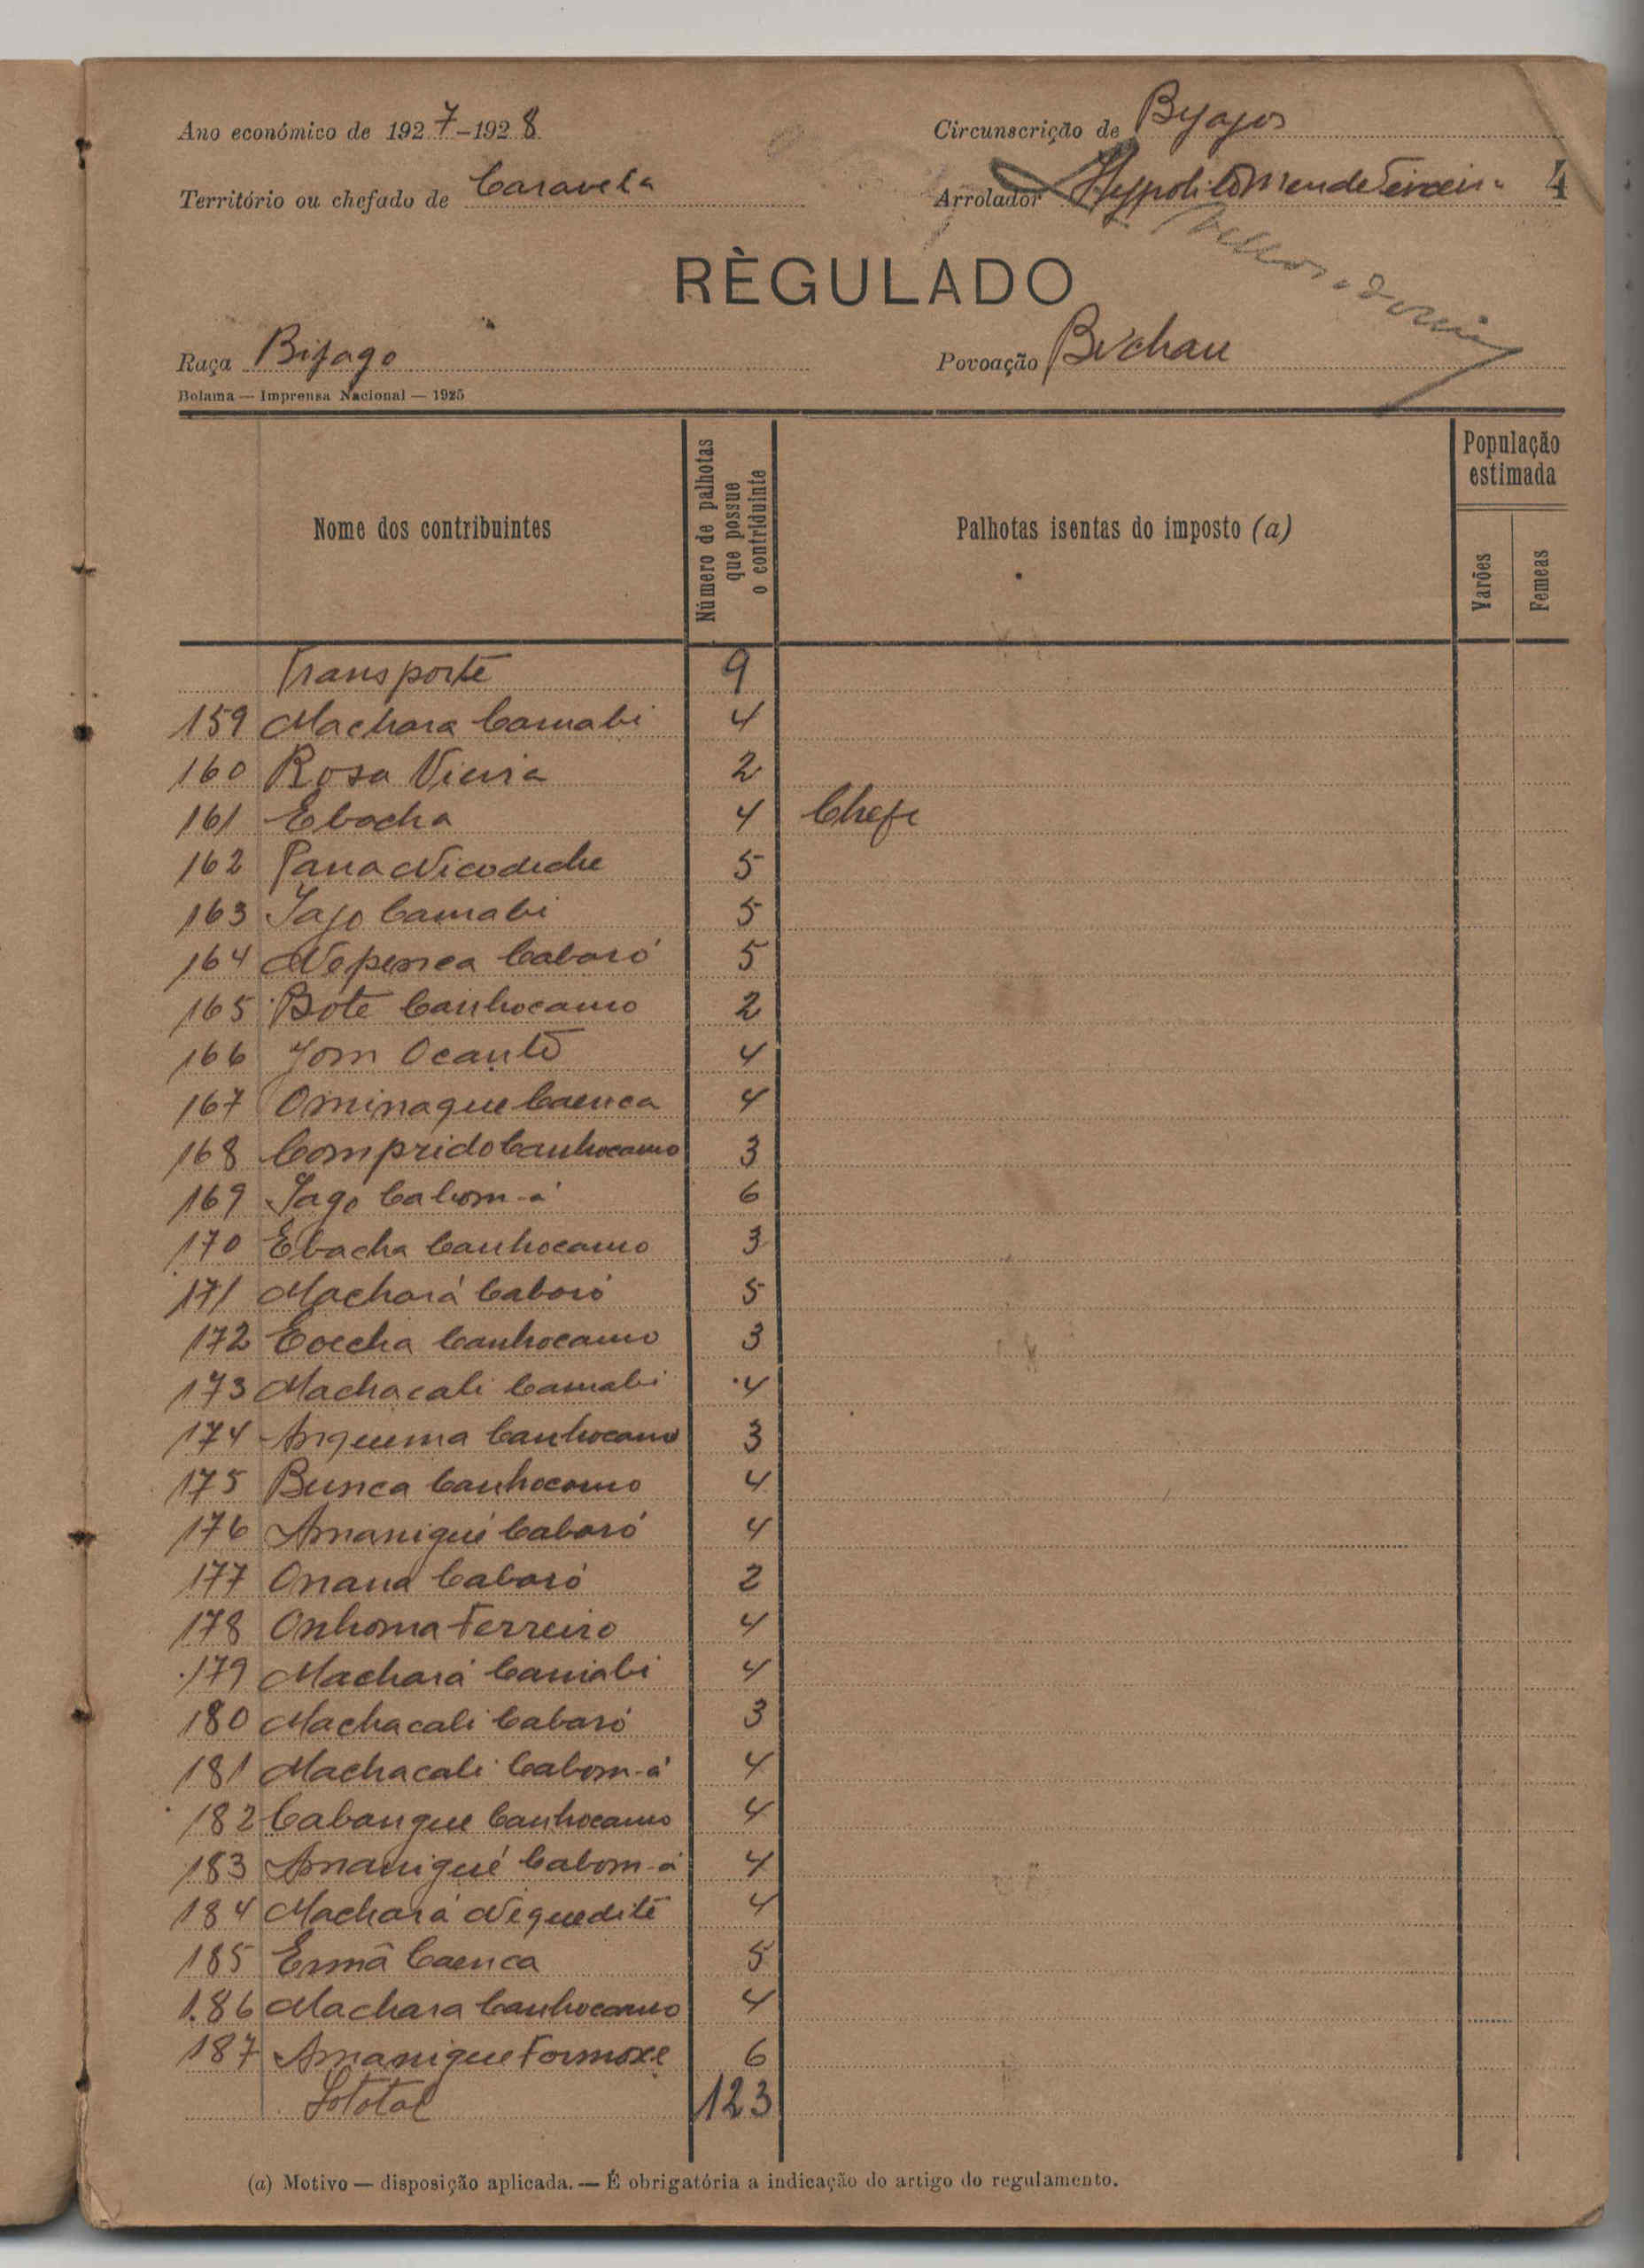 Ano económico de 1927-1928
Circunscrição de Byagos
Território ou chefado de Caravela
Arrolador Hyppolito Mende 4
RÈGULADO
Raça Bijago
Povoação Bichau
Bolama — Imprensa Nacional — 1925
Nome dos contribuintes
Número de palhotas que possue o contriduinte
Palhotas isentas do imposto (a)
População estimada
Varões
Femeas
Transporte 9
159 Machara Camabi 4
160 Rosa Vieira 2
161 Ebocha 4 Chefe
162 Pana 5
163 Iago Camabi 5
164 Nepenca Caboró 5
165 Bote Canhocamo 2
166 Jom Ocantõ 4
167 Ominaque Caenca 4
168 Comprido Canhocamo 3
169 Iago Cabom-á 6
170 Ebacha Canhocamo 3
171 Machará Caboró 5
172 Canhocamo 3
173 Machacali Camabi 4
174 Anquema Canhocamo 3
175 Bunca Canhocamo 4
176 Amanigué Caboró 4
177 Onana Caboró 2
178 Onhoma Ferreiro 4
179 Machará Camabi 4
180 Machacali Caboró 3
181 Machacali Cabom-á 4
182 Cabangue Canhocamo 4
183 Amanigué Cabom-á 4
184 Machará Neguedite 4
185 Ermâ Caenca 5
186 Machara Canhocamo 4
187 Amanigue Formoze 6
Sototal 123
(a) Motivo — disposição aplicada. — É obrigatória a indicação do artigo do regulamento.